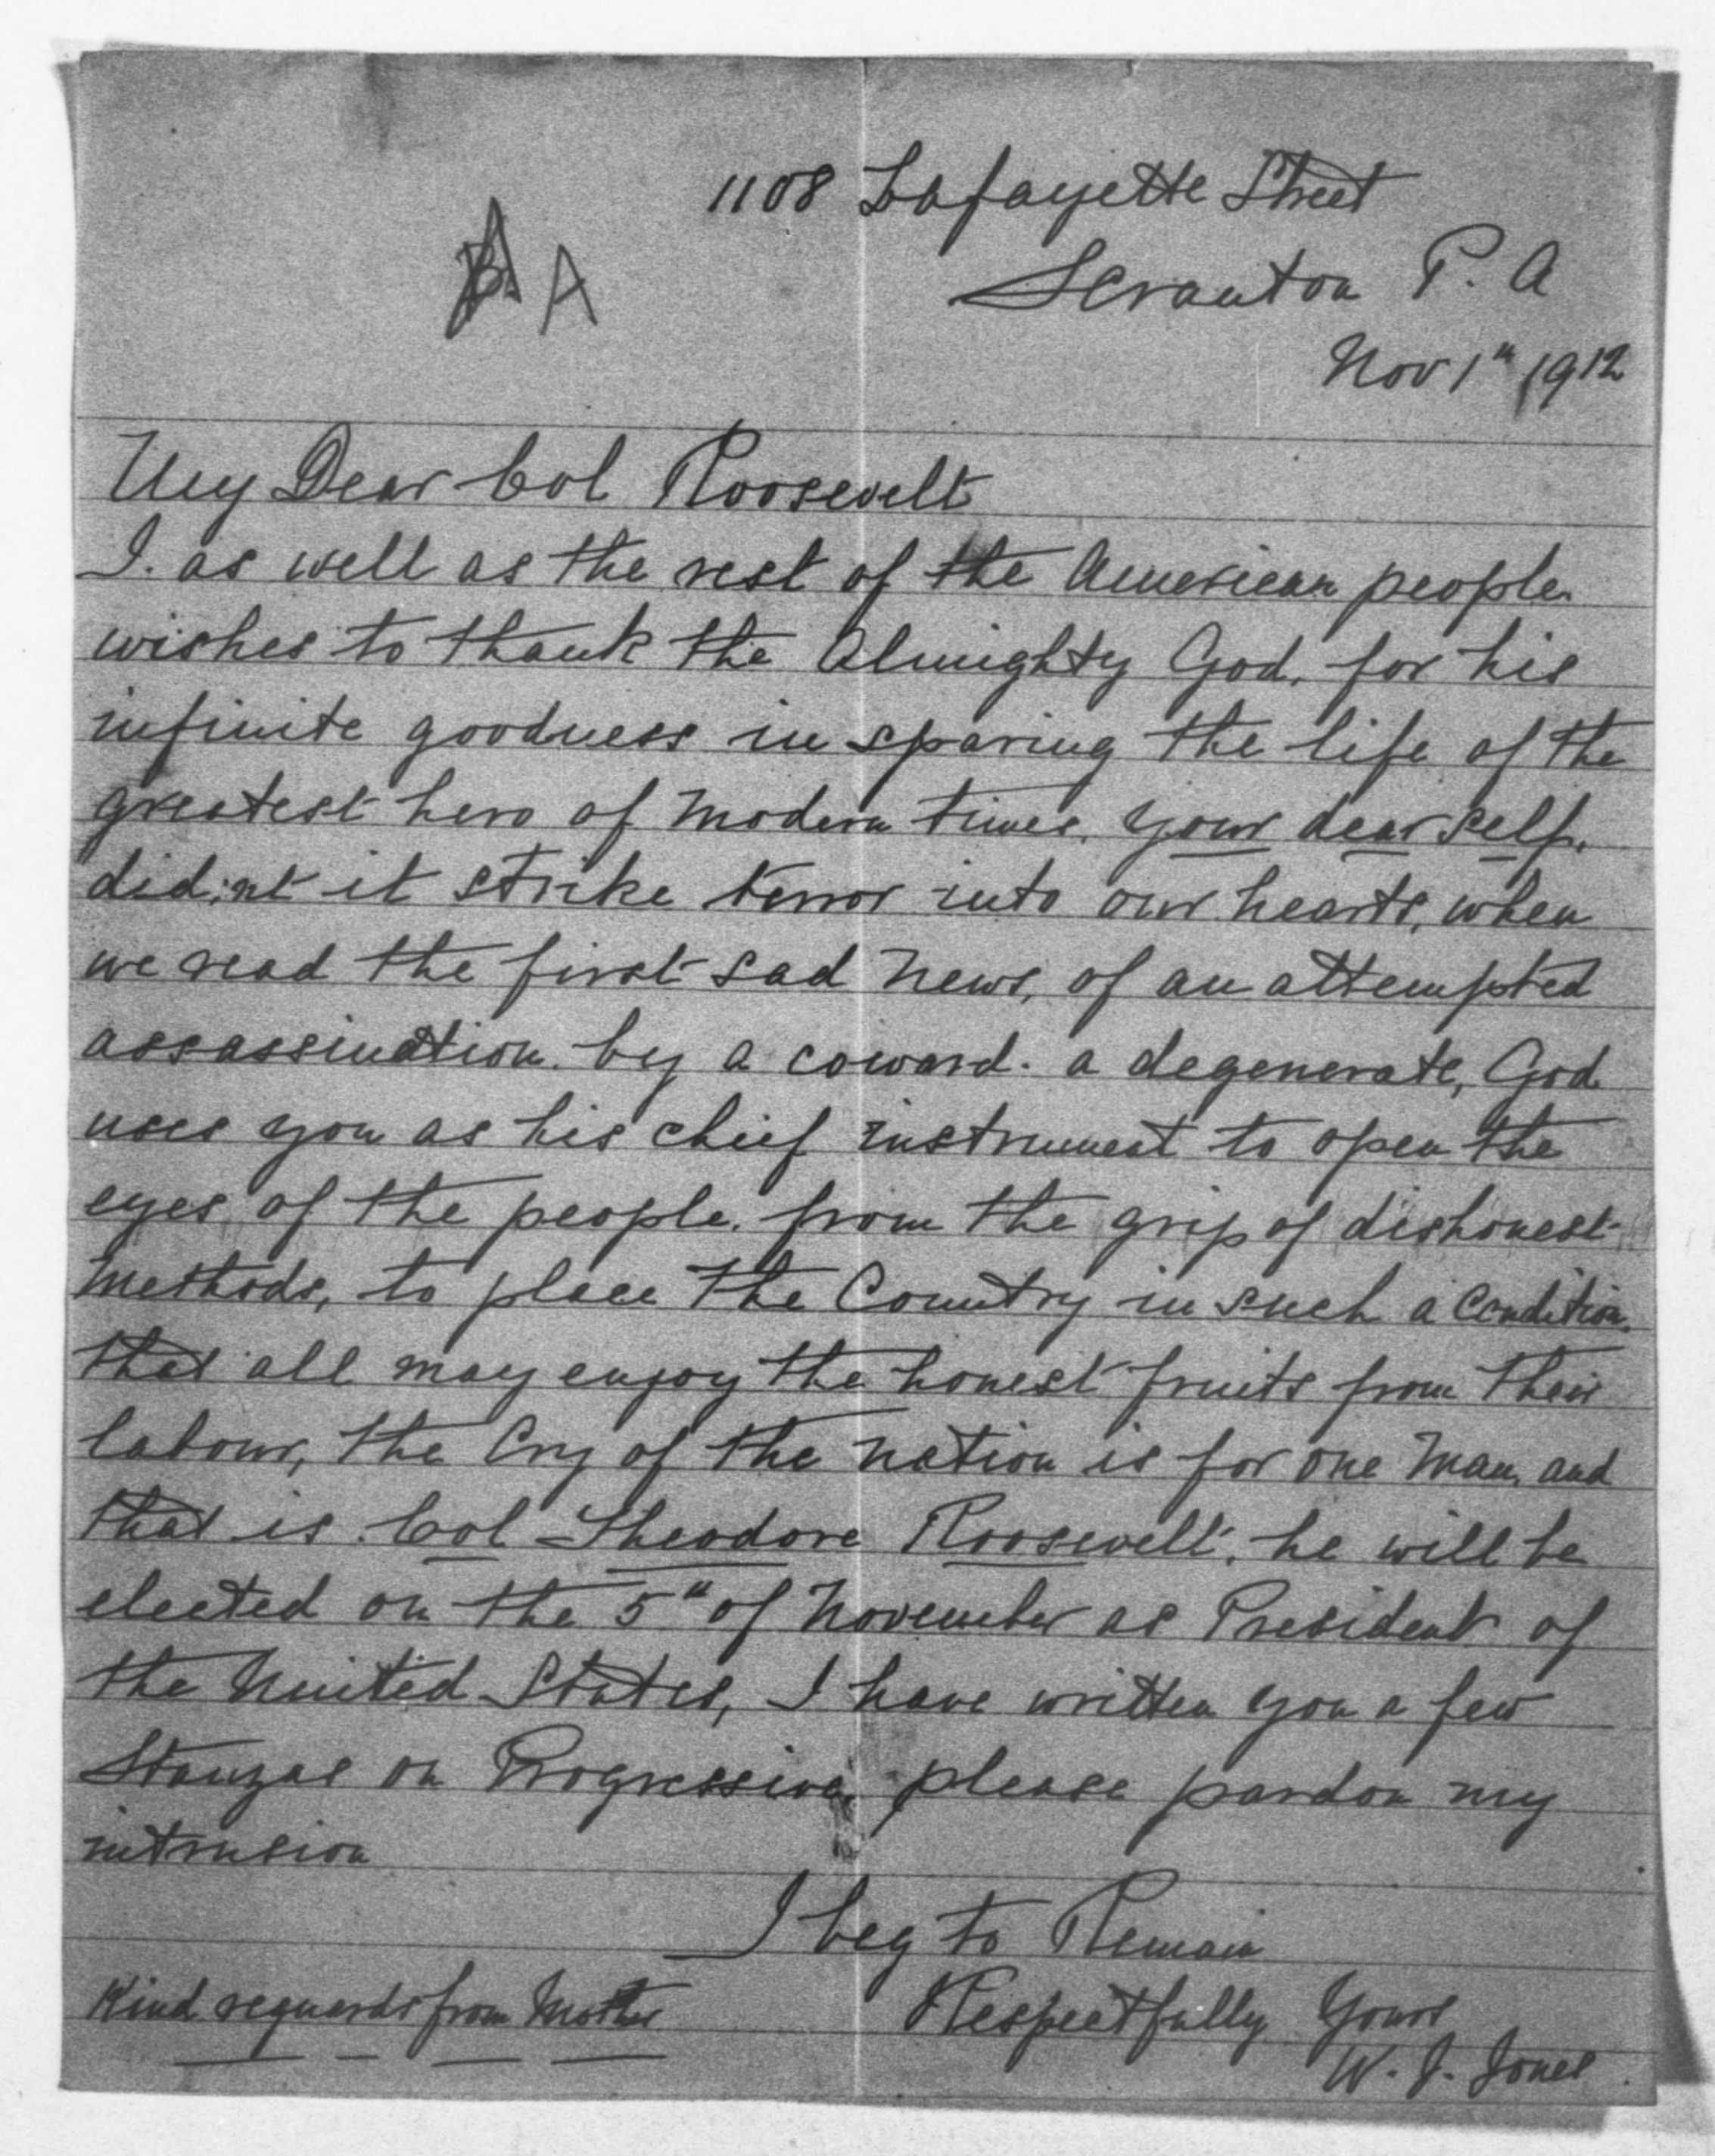 1108 Lafayette Street
A
Scranton P. A
Nov 1th 1912
My Dear Col Roosevelt
I. as well as the rest of the American people
wishes to thank the Almighty God, for his
infinite goodness in sparing the life of the
greatest hero of modern times, your dear self,
did;nt it strike terror into our hearts, when
we read the first sad news, of an attempted
assassination. by a coward. a degenerate, God
uses you as his chief instrument to open the
eyes of the people. from the grip of dishonest
methods, to place the Country in such a condition.
that all may enjoy the honest fruits from their
labour, the Cry of the nation is for one man, and
that is. Col Theodore Roosevelt, he will be
elected on the 5th of November as President of
the United States, I have written you a few
Stanzas on Progressive, please pardon my
intrusion
I beg to Remain
Kind reguards from Mother
Respectfully Yours
W. J. Jones